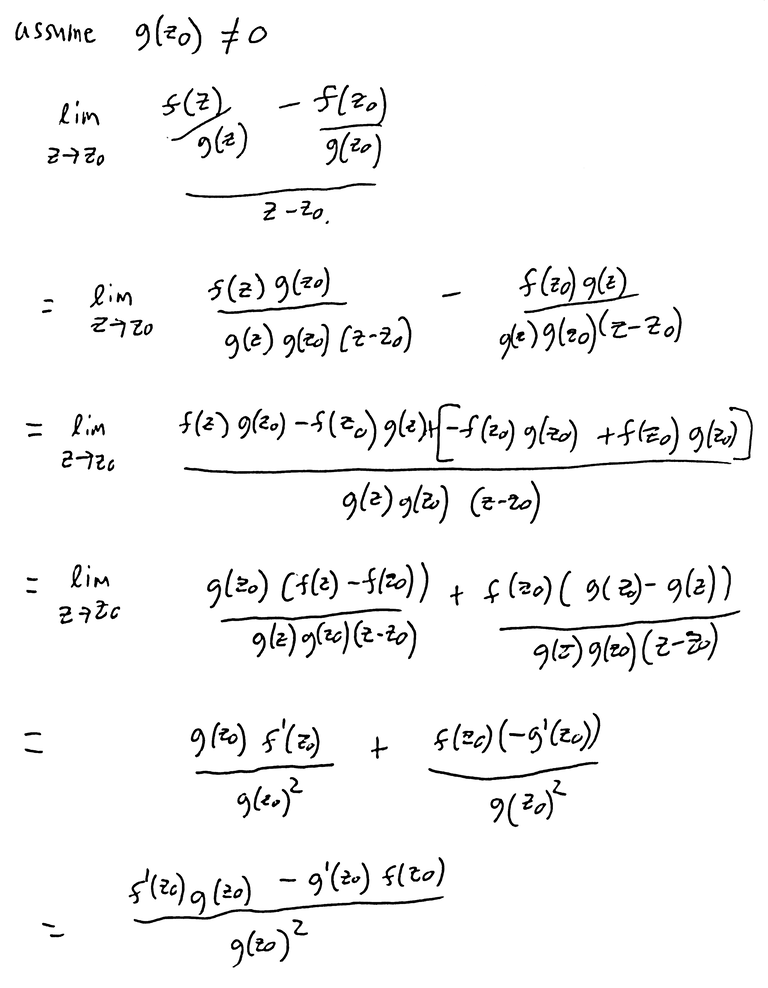 assume g(z₀) ≠ 0
lim_{z→z₀} (f(z)/g(z) − f(z₀)/g(z₀)) / (z − z₀).
= lim_{z→z₀} f(z) g(z₀) / (g(z) g(z₀) (z−z₀)) − f(z₀) g(z) / (g(z) g(z₀) (z−z₀))
= lim_{z→z₀} (f(z) g(z₀) − f(z₀) g(z) + [−f(z₀) g(z₀) + f(z₀) g(z₀)]) / (g(z) g(z₀) (z−z₀))
= lim_{z→z₀} g(z₀) (f(z) − f(z₀)) / (g(z) g(z₀) (z−z₀)) + f(z₀) (g(z₀) − g(z)) / (g(z) g(z₀) (z−z₀))
= g(z₀) f'(z₀) / g(z₀)² + f(z₀) (−g'(z₀)) / g(z₀)²
= (f'(z₀) g(z₀) − g'(z₀) f(z₀)) / g(z₀)²